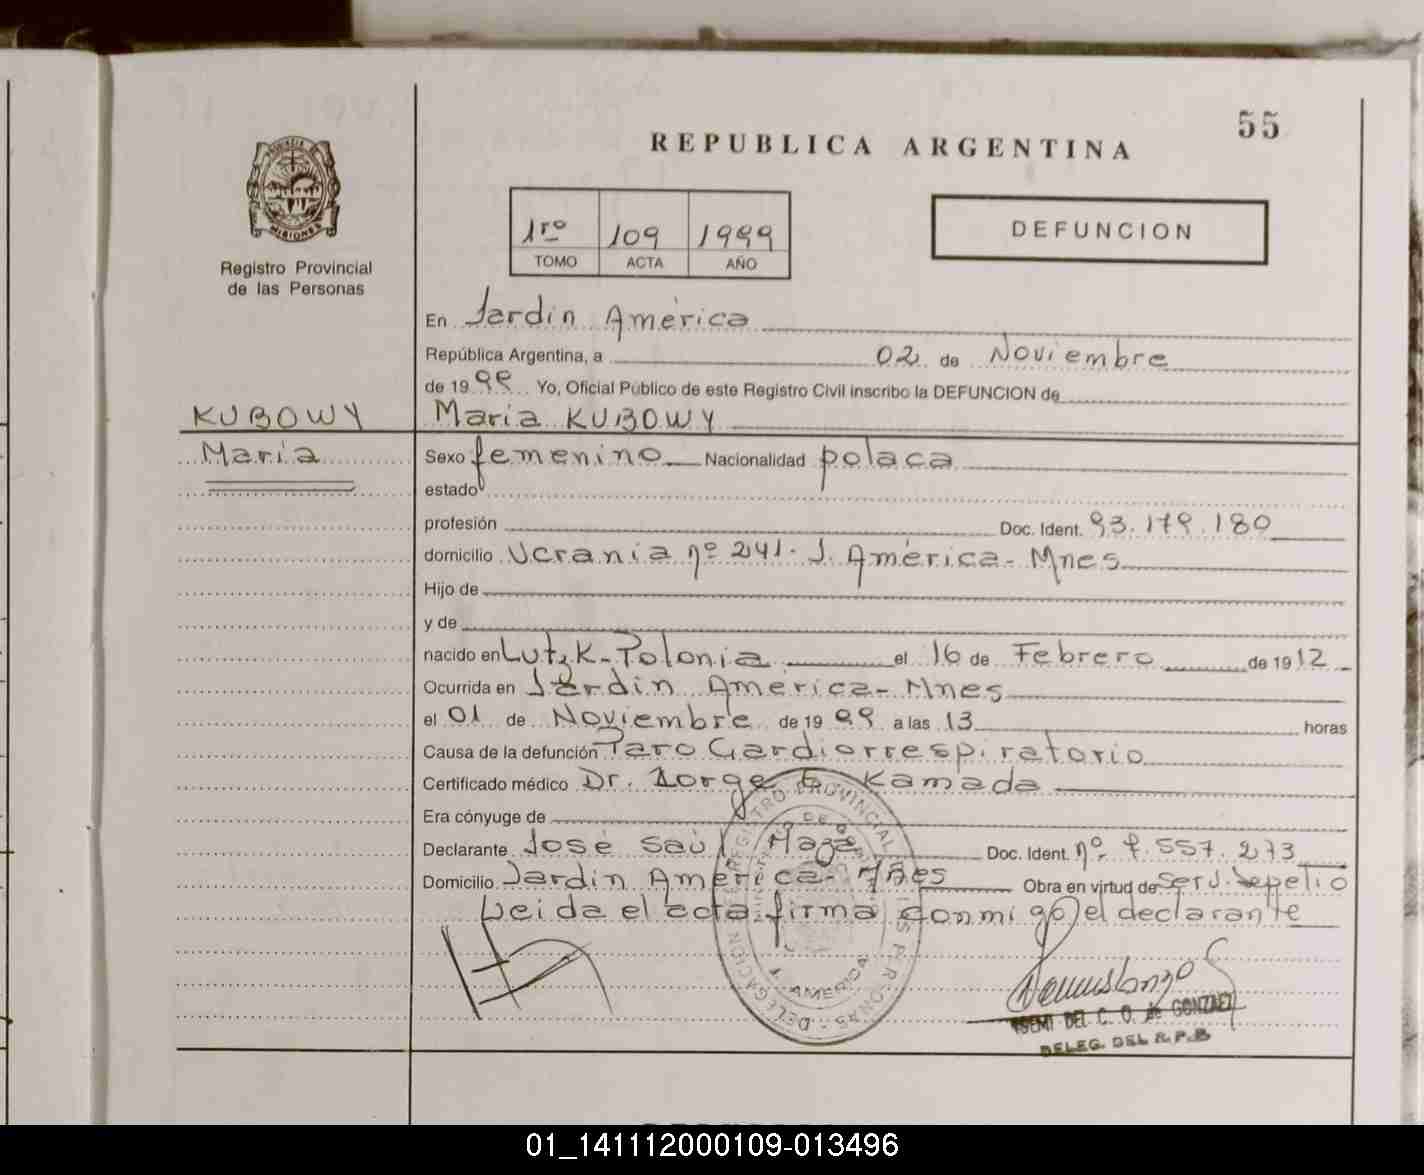 55
REPUBLICA ARGENTINA
PROVINCIA DE
MISIONES
Registro Provincial
de las Personas
1ro 109 1999
TOMO ACTA AÑO
DEFUNCION
En Jardín América
República Argentina, a 02 de Noviembre
de 1999 Yo, Oficial Público de este Registro Civil inscribo la DEFUNCION de
KUBOWY
María KUBOWY
María
Sexo femenino Nacionalidad polaca
estado
profesión Doc. Ident. 93.179.180
domicilio Ucrania nº 241. J. América - Mnes
Hijo de
y de
nacido en Lutzk - Polonia el 16 de Febrero de 1912
Ocurrida en Jardín América - Mnes
el 01 de Noviembre de 1999 a las 13 horas
Causa de la defunción Paro Cardiorrespiratorio
Certificado médico Dr. Jorge G Kamada
Era cónyuge de
Declarante José Saúl Maza Doc. Ident. nº 7.557.273
Domicilio Jardín América - Mnes Obra en virtud de Serv. Sepelio
Leida el acta firma conmigo el declarante
REGISTRO PROVINCIAL DE LAS PERSONAS - DELEGACION
J. AMERICA
DEL C. O. de GONZALEZ
DELEG. DEL R.P.B
01_141112000109-013496